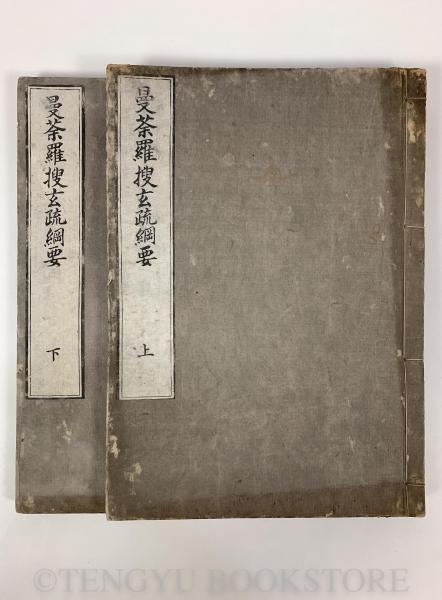 曼荼羅搜玄疏綱要
上
曼荼羅搜玄疏綱要
下
©TENGYU BOOKSTORE